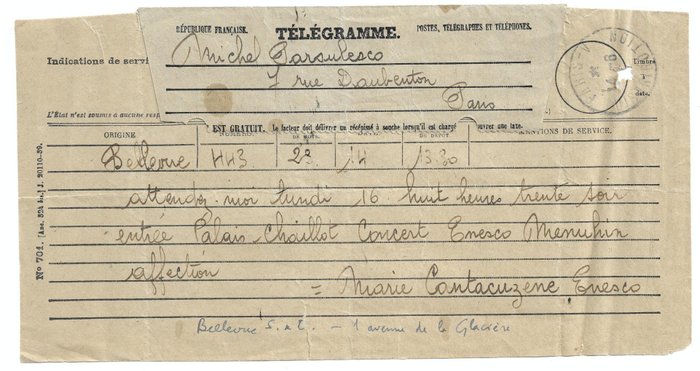 RÉPUBLIQUE FRANÇAISE. TÉLÉGRAMME. POSTES, TÉLÉGRAPHES ET TÉLÉPHONES.
Indications de servi
Timbre
Michel Parsulesco
7 rue Daubenton
Paris
date.
L'État n'est soumis à aucune resp
EST GRATUIT. Le facteur doit délivrer un récépissé à souche lorsqu'il est chargé
ouvrer une taxe.
ORIGINE NUMÉRO DE MOTS DE DÉPÔT NTIONS DE SERVICE.
Bellevue 443 23 14 13.30
attendez moi lundi 16 huit heures trente soir
entrée Palais Chaillot Concert Enesco Menuhin
affection
= Marie Cantacuzene Enesco
Bellevue S. et O. — 1 avenue de la Glacière
N° 701. J. 20110-39.